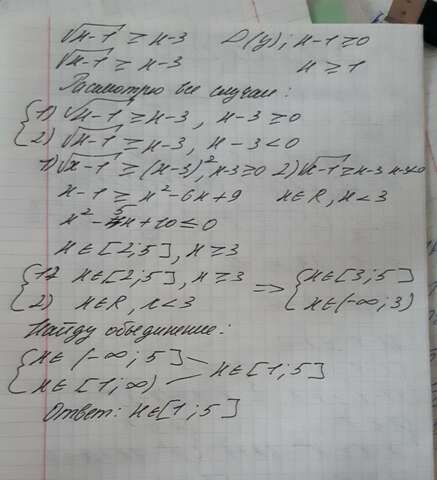 √x-1 ≥ x-3    D(y); x-1 ≥ 0
√x-1 ≥ x-3    x ≥ 1
Расмотрю все случаи:
{ 1) √x-1 ≥ x-3, x-3 ≥ 0
2) √x-1 ≥ x-3, x-3 < 0
1) √x-1 ≥ (x-3)², x-3 ≥ 0  2) √x-1 ≥ x-3 x-3<0
x-1 ≥ x²-6x+9    x∈R, x<3
x²-7x+10 ≤ 0
x∈[2;5], x ≥ 3
{ 1) x∈[2;5], x ≥ 3 => { x∈[3;5]
2) x∈R, x<3    x∈(-∞;3)
Найду объединение:
{ x∈(-∞;5]
x∈[1;∞) x∈[1;5]
Ответ: x∈[1;5]